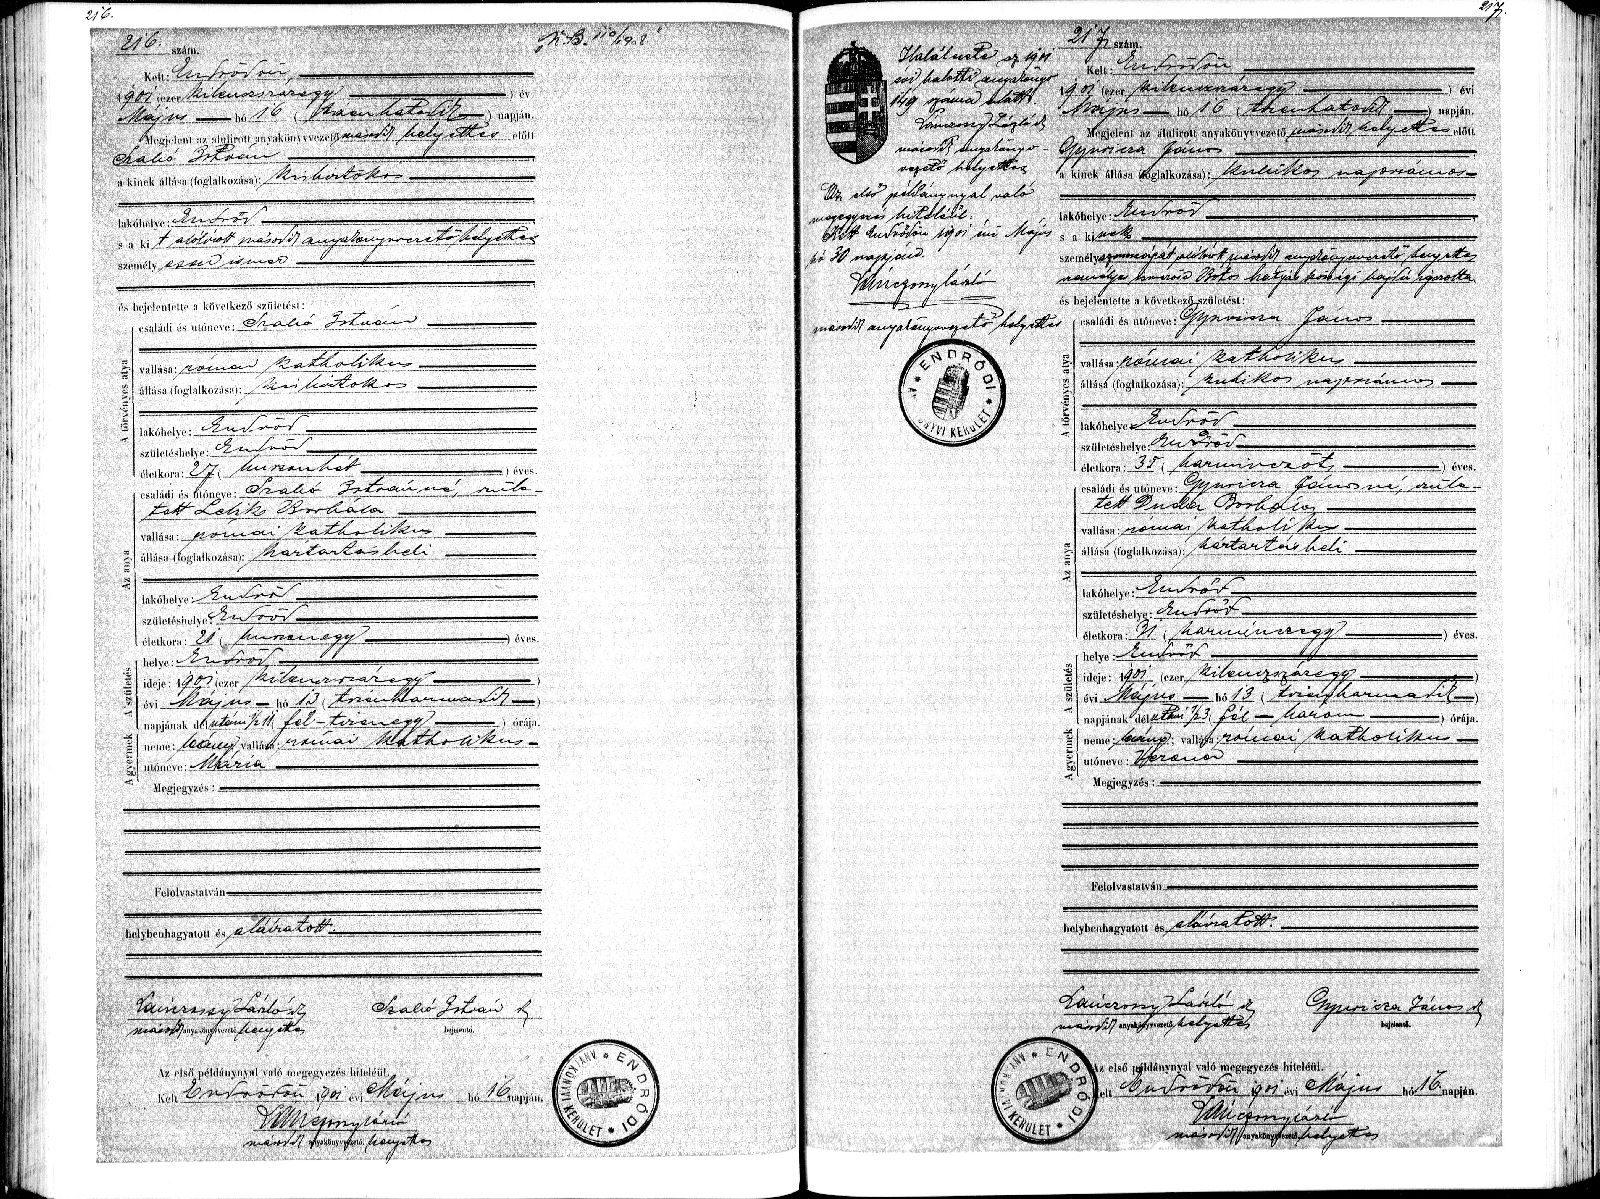 216.
216. szám.
Kelt: Endrődön,
1901 (ezer kilenczszázegy) év
Május hó 16 (tizenhatodik) napján.
Megjelent az alulirott anyakönyvvezető második helyettes előtt
Szabó István
a kinek állása (foglalkozása): kisbirtokos
lakóhelye: Endrőd
s a kit alólírott második anyakönyvvezető helyettes
személyesen ismer
és bejelentette a következő születést:
A törvényes atya
családi és utóneve: Szabó István
vallása: római katholikus
állása (foglalkozása): kisbirtokos
lakóhelye: Endrőd
születéshelye: Endrőd
életkora: 27 (huszonhét) éves.
Az anya
családi és utóneve: Szabó Istvánné, szüle-
tett Borbála
vallása: római katholikus
állása (foglalkozása): háztartásbeli
lakóhelye: Endrőd
születéshelye: Endrőd
életkora: 21 (huszonegy) éves.
A születés
helye: Endrőd
ideje: 1901 (ezer kilenczszázegy)
évi Május hó 13 (tizenharmadik)
napjának délután 1/2 11 (fél-tizenegy) órája.
A gyermek
neme: leány; vallása: római katholikus
utóneve: Mária
Megjegyzés:
Felolvastatván
helybenhagyatott és aláíratott.
Lánczossy László
második anyakönyvvezető helyettes
Szabó István
bejelentő.
Az első példánynyal való megegyezés hiteléül.
Kelt Endrődön 1901 évi Május hó 16 napján.
második anyakönyvvezető helyettes
ENDRŐDI ANYAKÖNYVI KERÜLET
217.
Halálesete az 1901
évi halotti anyakönyv
149 száma alatt
Lánczossy László
második anyakönyv-
vezető helyettes
Az első példánynyal való
megegyezés hiteléül.
Kelt Endrődön 1901 évi Május
hó 30 napján.
második anyakönyvvezető helyettes
ENDRŐDI
217 szám.
Kelt: Endrődön
1901 (ezer kilenczszázegy) évi
Május hó 16 (tizenhatodik) napján.
Megjelent az alulirott anyakönyvvezető második helyettes előtt
Gyuricza János
a kinek állása (foglalkozása): kubikos napszámos
lakóhelye: Endrőd
s a kinek
személyazonosságát alólírott második anyakönyvvezető helyettes
községi hajdú igazolta
és bejelentette a következő születést:
A törvényes atya
családi és utóneve: Gyuricza János
vallása: római katholikus
állása (foglalkozása): kubikos napszámos
lakóhelye: Endrőd
születéshelye: Endrőd
életkora: 35 (harminczöt) éves.
Az anya
családi és utóneve: Gyuricza Jánosné, szüle-
tett Duda Borbála
vallása: római katholikus
állása (foglalkozása): háztartásbeli
lakóhelye: Endrőd
születéshelye: Endrőd
életkora: 31 (harminczegy) éves.
A születés
helye: Endrőd
ideje: 1901 (ezer kilenczszázegy)
évi Május hó 13 (tizenharmadik)
napjának délután 1/2 3 (fél - három) órája.
A gyermek
neme: leány; vallása: római katholikus
utóneve: Verona
Megjegyzés:
Felolvastatván
helybenhagyatott és aláíratott.
Lánczossy László
második anyakönyvvezető helyettes
Gyuricza János
bejelentő.
Az első példánynyal való megegyezés hiteléül.
Kelt Endrődön 1901 évi Május hó 16 napján.
második anyakönyvvezető helyettes
ENDRŐDI